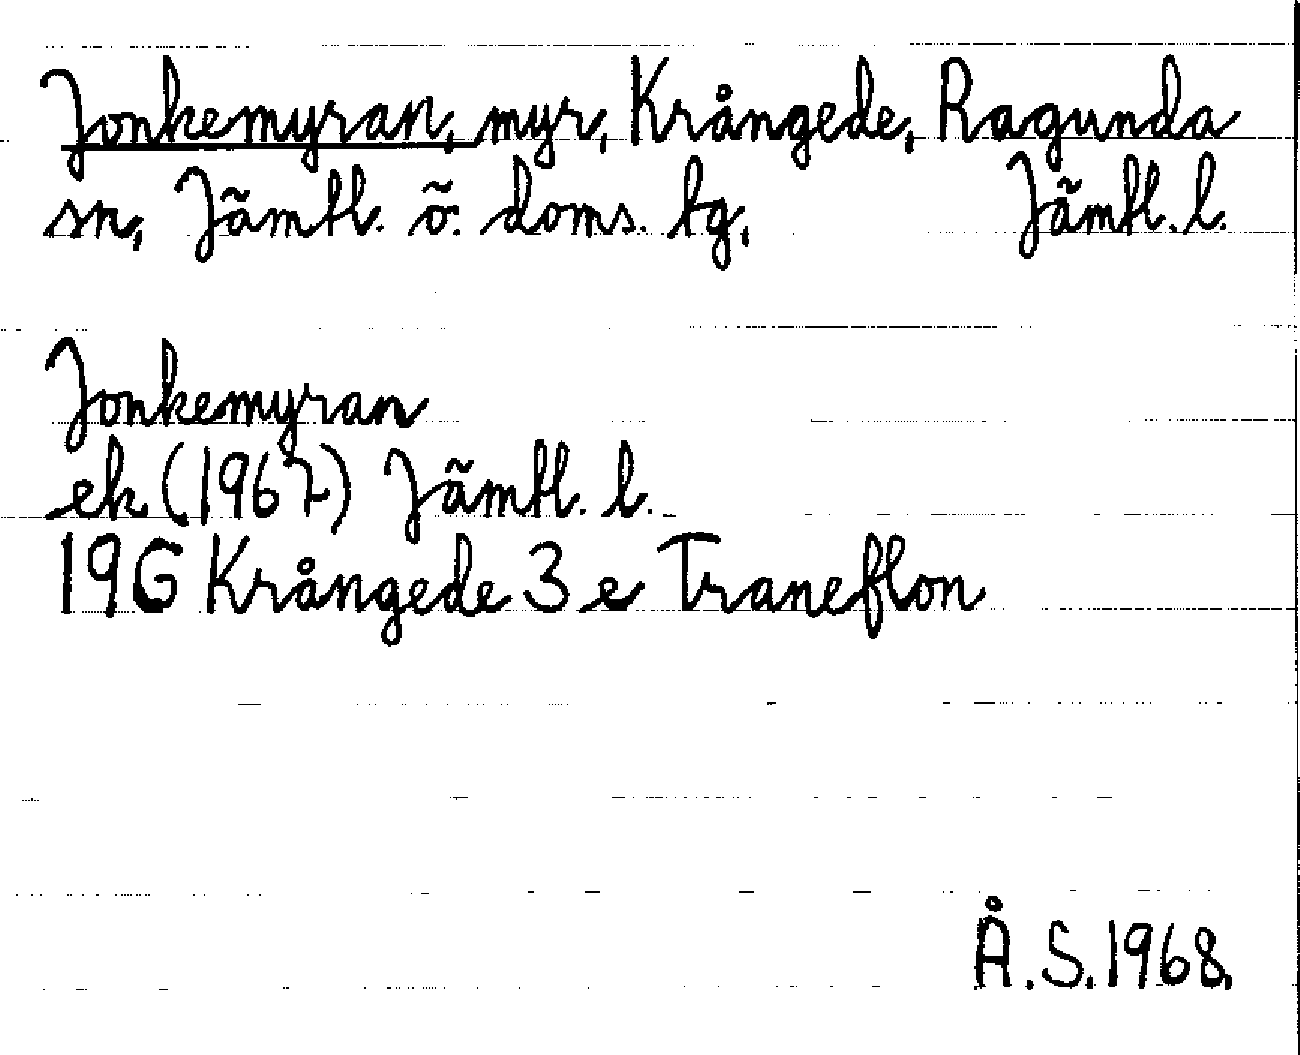 Jonkemyran, myr, Krångede, Ragunda
sn, Jämtl. ö. doms. tg, Jämtl. l.
Jonkemyran
ek (1967) Jämtl. l.
19G Krångede 3 e Traneflon
Å.S. 1968.